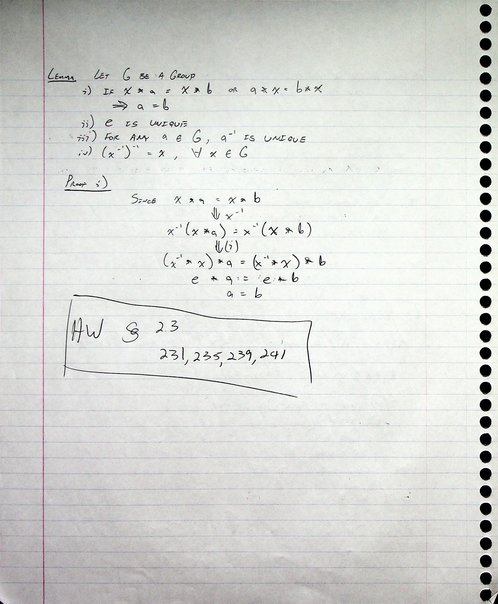 Lemma Let G be a Group
i) If x * a = x * b or a * x = b * x
⇒ a = b
ii) e is unique
iii) For any a ∈ G, a⁻¹ is unique
iv) (x⁻¹)⁻¹ = x, ∀ x ∈ G
Proof i)
Since x * a = x * b
⇓ x⁻¹
x⁻¹(x * a) = x⁻¹(x * b)
⇓ (i)
(x⁻¹ * x) * a = (x⁻¹ * x) * b
e * a = e * b
a = b
HW § 23
231, 235, 239, 241